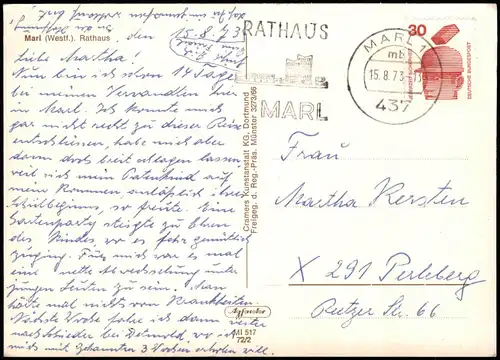 Marl (Westf.). Rathaus
den 15.8.73
Liebe Martha!
Nun bin ich schon 14 Tage
bei meinen Verwandten hier
in Marl. Ich konnte mich
gar nicht recht zu dieser Reise
entschliessen, habe mich aber
dann doch breit schlagen lassen
weil sich mein Patenkind auf
mein Kommen, anläßlich ihres
Schulbeginns, so freute. Eine
Gartenparty stieg zu Ehren
des Kindes, wo es sehr gemütlich
zuging. Für mich war es mal
eine nette Abwechslung unter
jungen Leuten zu sein. Man
hörte mal nichts von Krankheiten.
Nächste Woche fahre ich dann weiter
nach Schieder bei Detmold, wo ich
mich mit Bekannten 3 Wochen erholen will.
Cramers Kunstanstalt KG, Dortmund
Freigeg. d. Reg.-Präs. Münster 3273/66
Agfacolor
MI 517
72/2
RATHAUS
MARL
MARL 1
mb
15.8.73
437
30
DEUTSCHE BUNDESPOST
Frau
Martha Kersten
X 291 Perleberg
Reetzer Str. 66